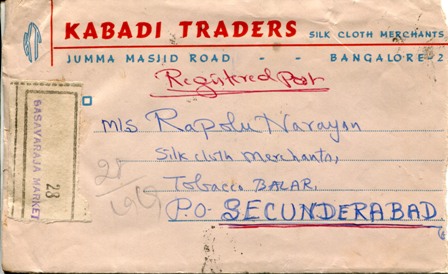 KABADI TRADERS SILK CLOTH MERCHANTS
JUMMA MASJID ROAD - - BANGALORE-2
Registered Post
M/s Rapolu Narayan
Silk cloth Merchants,
Tobacco BALAR,
P.O- SECUNDERABAD
BASAVARAJA MARKET
23